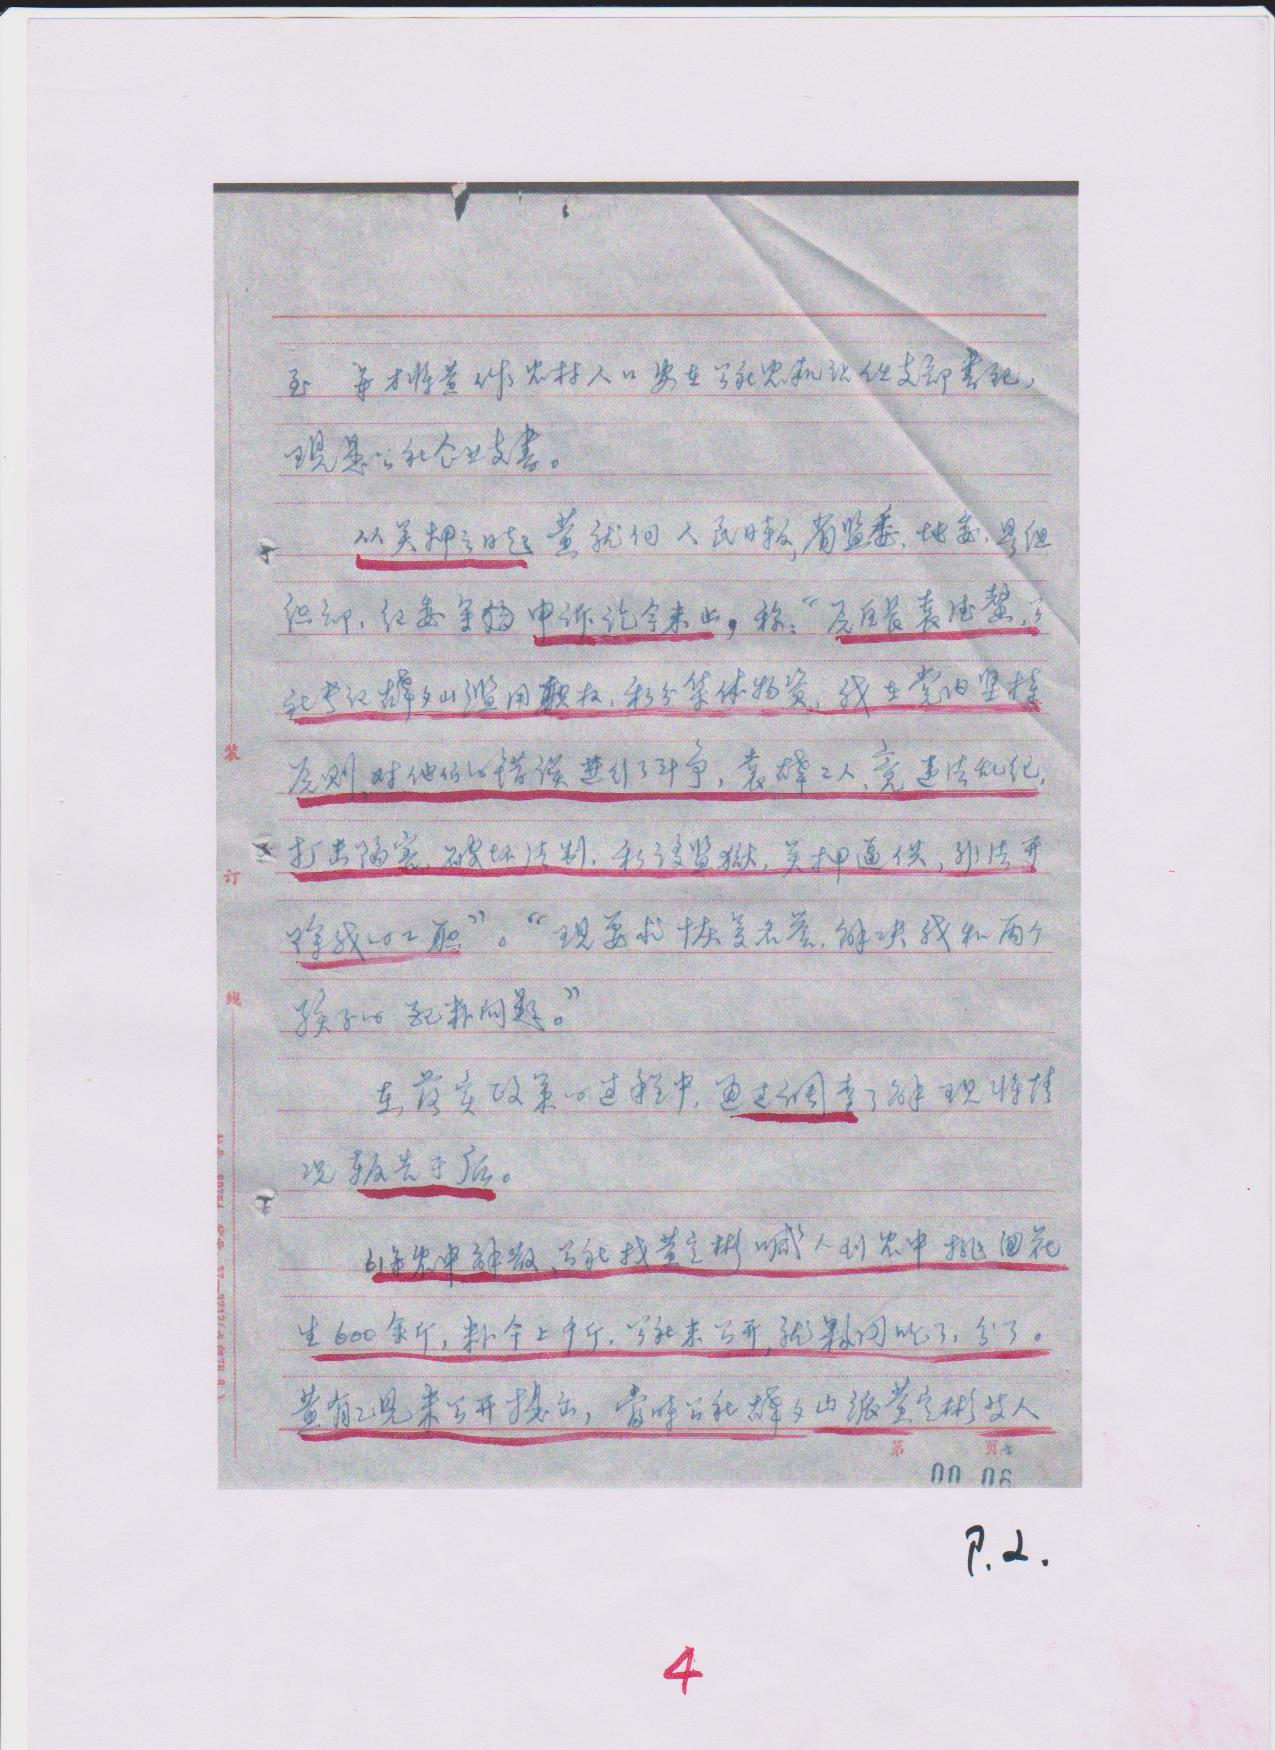 至 年才将黄作农村人口安在公社农机站任支部书记，
现是公社企业支书。
从关押之日起黄就向人民日报，省监委、地委、县组
织部、纪委等 申诉讫今未止，称：“原区长袁德 ，公
社书记 夕山滥用职权，私分集体物资，我在党内坚持
原则，对他们的错误进行了斗争，袁 二人，竟违法乱纪，
打击陷害，破坏法制，私设监狱，关押逼供，非法开
除我的工职”。“现要求恢复名誉，解决我和两个
孩子的配粮问题。”
在落实政策的过程中，通过调查了解现将情
况报告于后。
61年农中解散，公社找黄定彬喊人到农中挑回花
生600余斤，粮食上千斤，公社未公开，就 吃了，分了。
黄有意见来公开提出，当时公社 夕山派黄定彬等人
装
订
线
第 页
00 06
P.2.
4